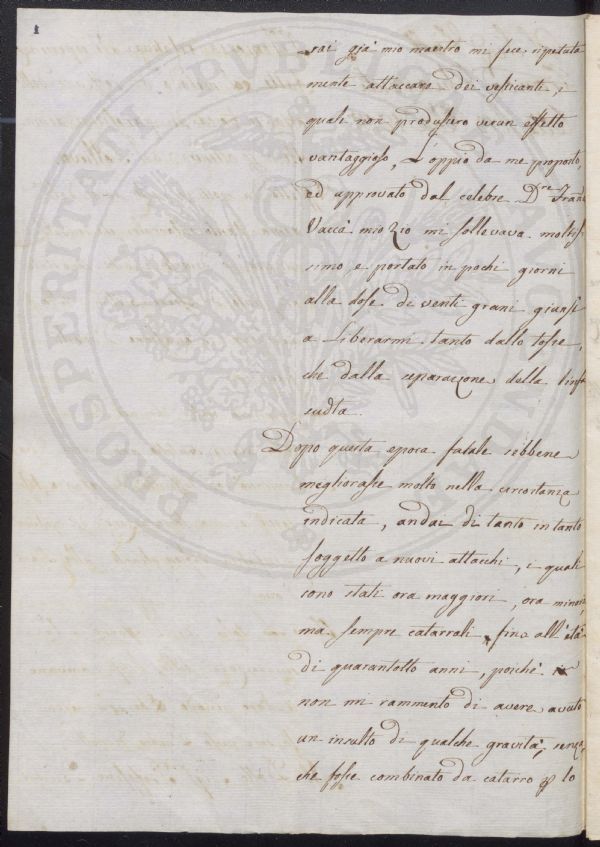 1
rai già mio maestro mi fece ripetuta
mente attaccare dei vessicanti, i
quali non produssero verun effetto
vantaggioso, L'oppio da me proposto,
ed approvato dal celebre D.re Fran.
Vaccà mio Zio mi sollevava moltis
simo, e portato in pochi giorni
alla dose di venti grani giunse
a liberarmi tanto dalla tosse,
che dalla separazione della linfa
sudta.
Dopo questa epoca fatale sebbene
megliorasse molto nella circostanza
indicata, andai di tanto in tanto
soggetto a nuovi attacchi, i quali
sono stati ora maggiori, ora minori,
ma sempre catarrali fino all'età
di quarantotto anni, poichè io
non mi rammento di avere avuto
un insulto di qualche gravità, senza,
che fosse combinato da catarro lo
PROSPERITATI PUBL